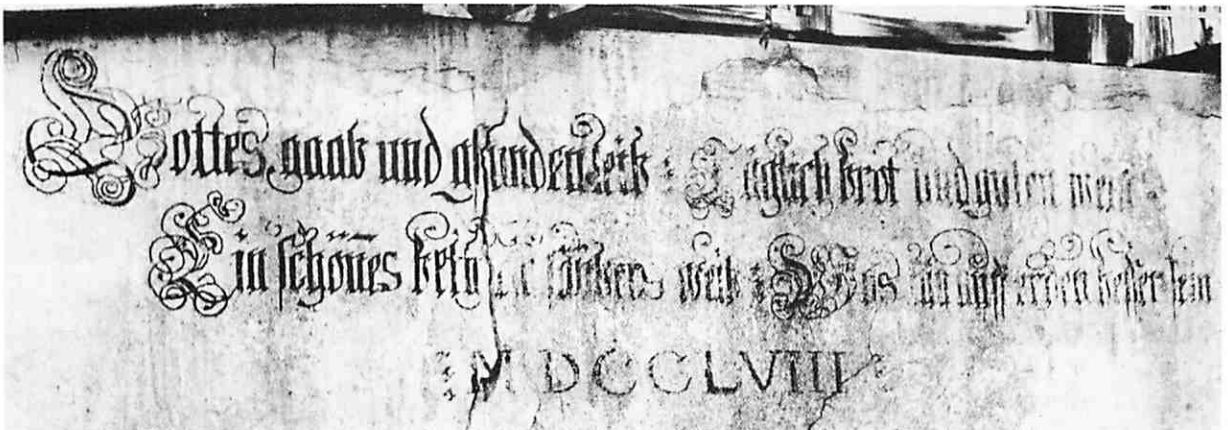 Gottes gaab und gsunden leib : Täglich brot und guten wein
Ein schönes beth weib : Was kan auff erden besser sein
: MDCCLVIII :